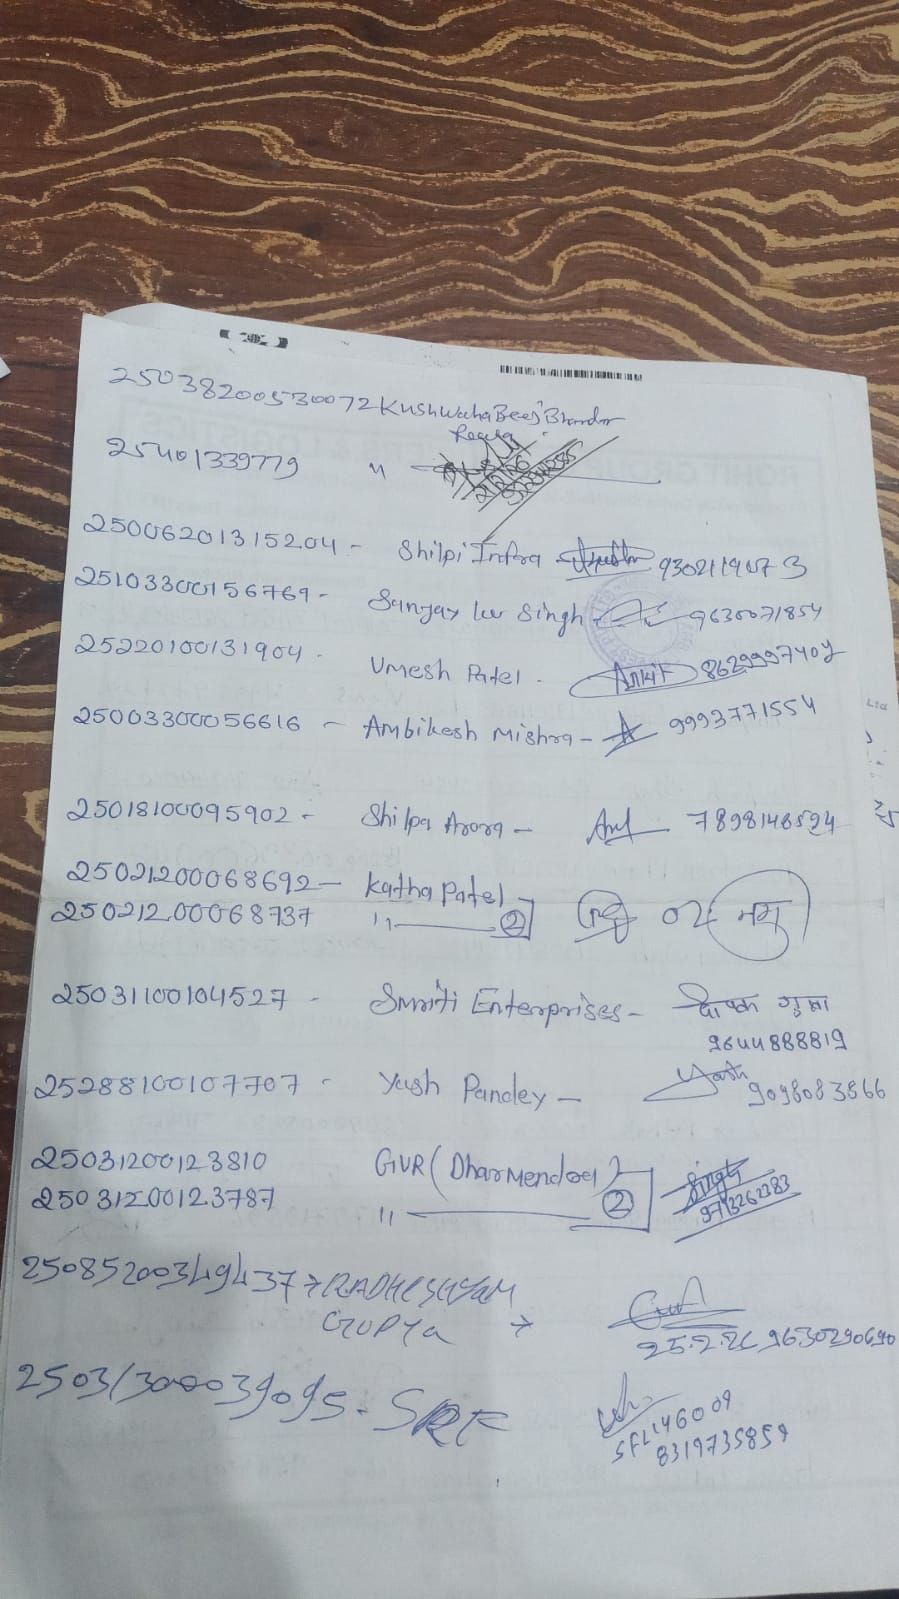 25038200530072 Kushwaha Beej Bhandar
Rewa
25401339779 "
25006201315204 - Shilpi Infra 9302119073
25103300156769 - Sanjay kr Singh - 9630071854
25220100131904 - Umesh Patel - Ankit 8629997407
25003300056616 - Ambikesh Mishra - 9993771554
25018100095902 - Shilpa Arora - 7898148594
25021200068692 - Katha Patel
25021200068737 " 2 02
25031100104527 - Smriti Enterprises - दीपक गुप्ता
9644888819
25288100107707 - Yash Pandey - Yash
9098083866
25031200123810 GVR (Dharmendra)
25031200123787 " 2 Singh
9713262383
25085200349437 → RADHESHYAM
GUPTA →
25.2.26 9630290690
25031300039095 - SRF
SFL146009
8319735859